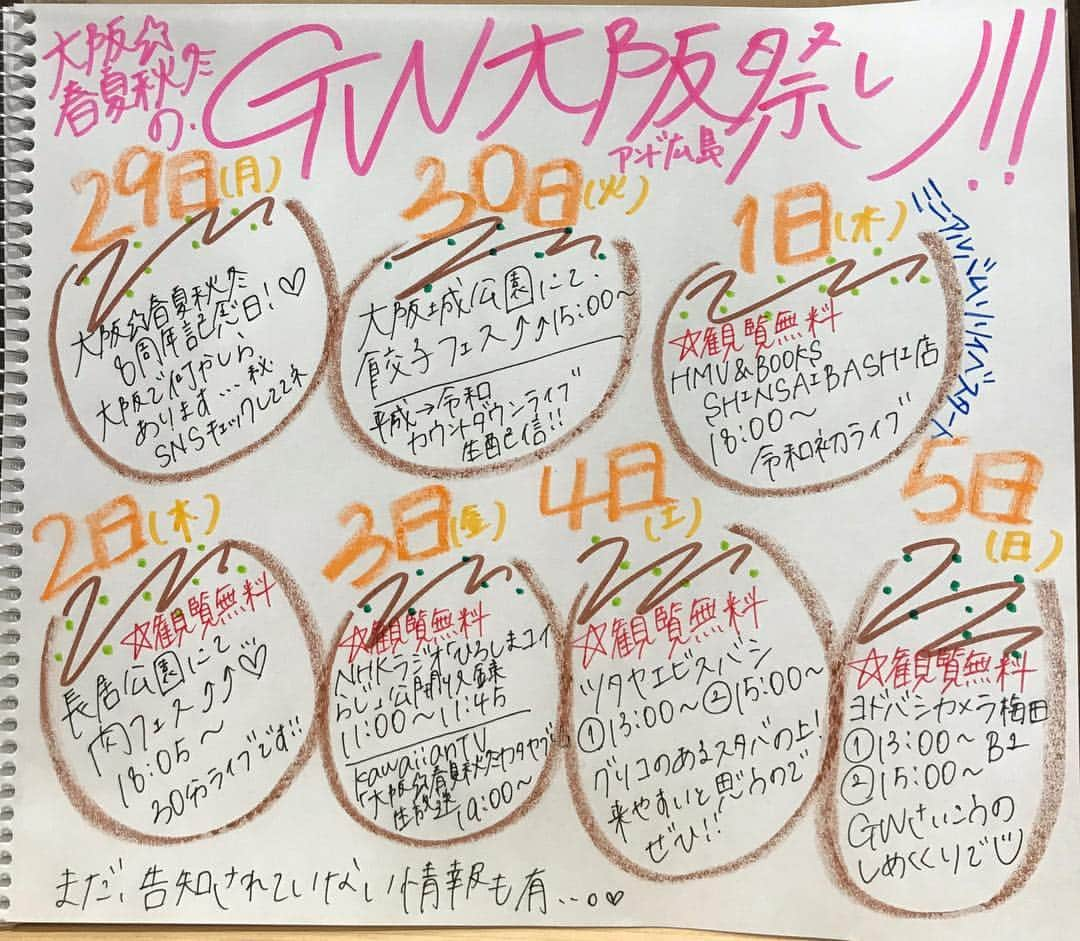 大阪☆
春夏秋冬
の
GW大阪祭り!!!
アンド広島
29日(月)
大阪☆春夏秋冬
8周年記念日!♡
大阪で何やしら
あります…秘
SNSチェックしてネ
30日(火)
大阪城公園にて、
餃子フェス↑↑15:00〜
平成→令和
カウントダウンライブ
生配信!!
1日(木)
ミニアルバムリリイベスタート
☆観覧無料
HMV&BOOKS
SHINSAIBASHI店
18:00〜
令和初ライブ
2日(木)
☆観覧無料
長居公園にて
肉フェス↑↑♡
18:05〜
30分ライブです!!
3日(金)
☆観覧無料
NHKラジオ「ひろしまコイ
らじ」公開収録
11:00〜11:45
kawaiianTV
「大阪☆春夏秋冬カタヤブ」
生放送
19:00〜
4日(土)
☆観覧無料
ツタヤエビスバシ
①13:00〜②15:00〜
グリコのあるスタバの上!
来やすいと思うので
ぜひ!!
5日(日)
☆観覧無料
ヨドバシカメラ梅田
①13:00〜B1
②15:00〜
GWさいこうの
しめくくりで
まだ、告知されていない情報も有…。♡